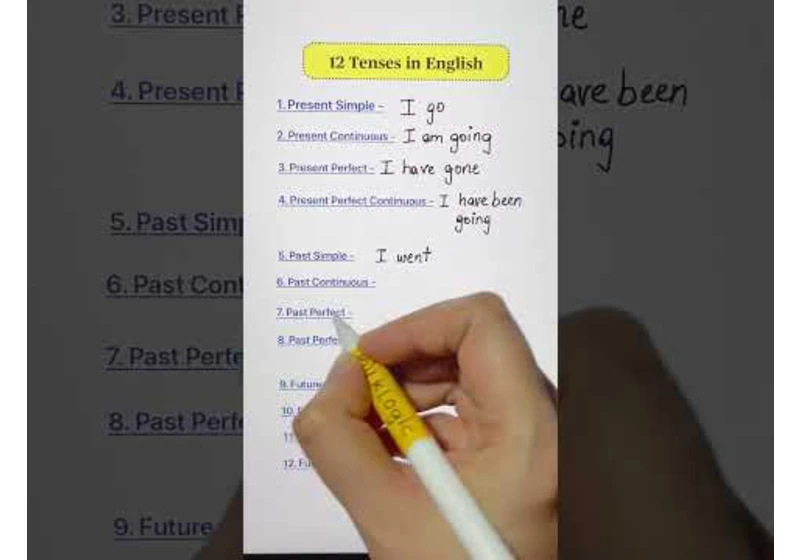 12 Tenses in English
1. Present Simple - I go
2. Present Continuous - I am going
3. Present Perfect - I have gone
4. Present Perfect Continuous - I have been
going
5. Past Simple - I went
6. Past Continuous -
7. Past Perfect -
8. Past
9. Future
10.
11
12.
3. Present
4. Present
5. Past
6. Past
7. Past
8. Past
9. Future
have been